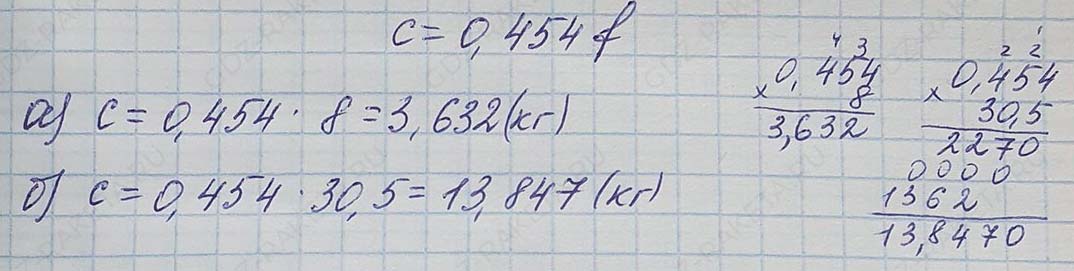 c = 0,454 f
а) c = 0,454 · 8 = 3,632 (кг)
б) c = 0,454 · 30,5 = 13,847 (кг)
4 3
0,454
× 8
3,632
1
2 2
0,454
× 30,5
2270
0000
1362
13,8470